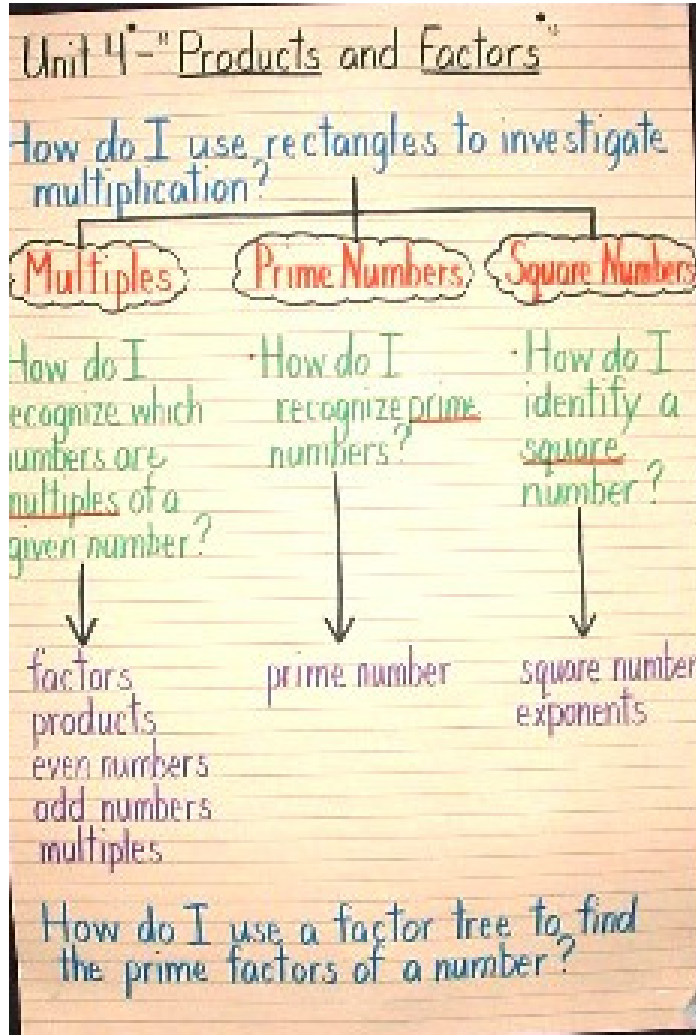 Unit 4 - "Products and Factors"
How do I use rectangles to investigate
multiplication?
Multiples
Prime Numbers
Square Numbers
How do I
recognize which
numbers are
multiples of a
given number?
How do I
recognize prime
numbers?
How do I
identify a
square
number?
factors
products
even numbers
odd numbers
multiples
prime number
square number
exponents
How do I use a factor tree to find
the prime factors of a number?